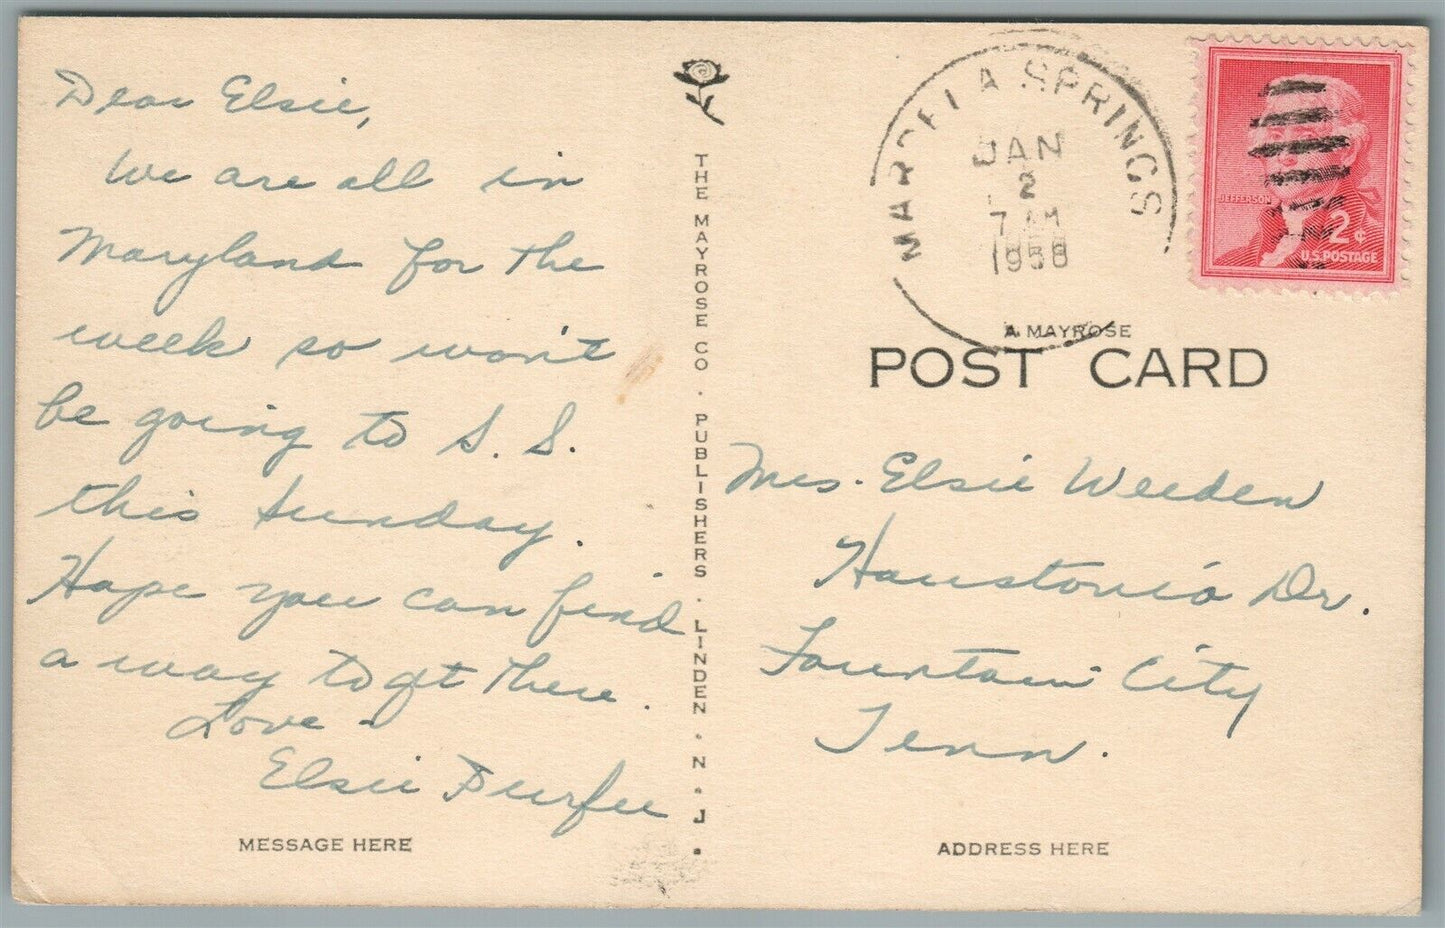 Dear Elsie,
We are all in
Maryland for the
week so won't
be going to S. S.
this Sunday.
Hope you can find
a way to get there.
Love -
Elsie Durfee
MESSAGE HERE
THE MAYROSE CO. PUBLISHERS. LINDEN. N. J.
MARDELA SPRINGS
JAN
2
7 AM
1958
JEFFERSON
2¢
U.S. POSTAGE
A MAYROSE
POST CARD
Mrs. Elsie Weeden
Dr.
Fountain City
Tenn.
ADDRESS HERE